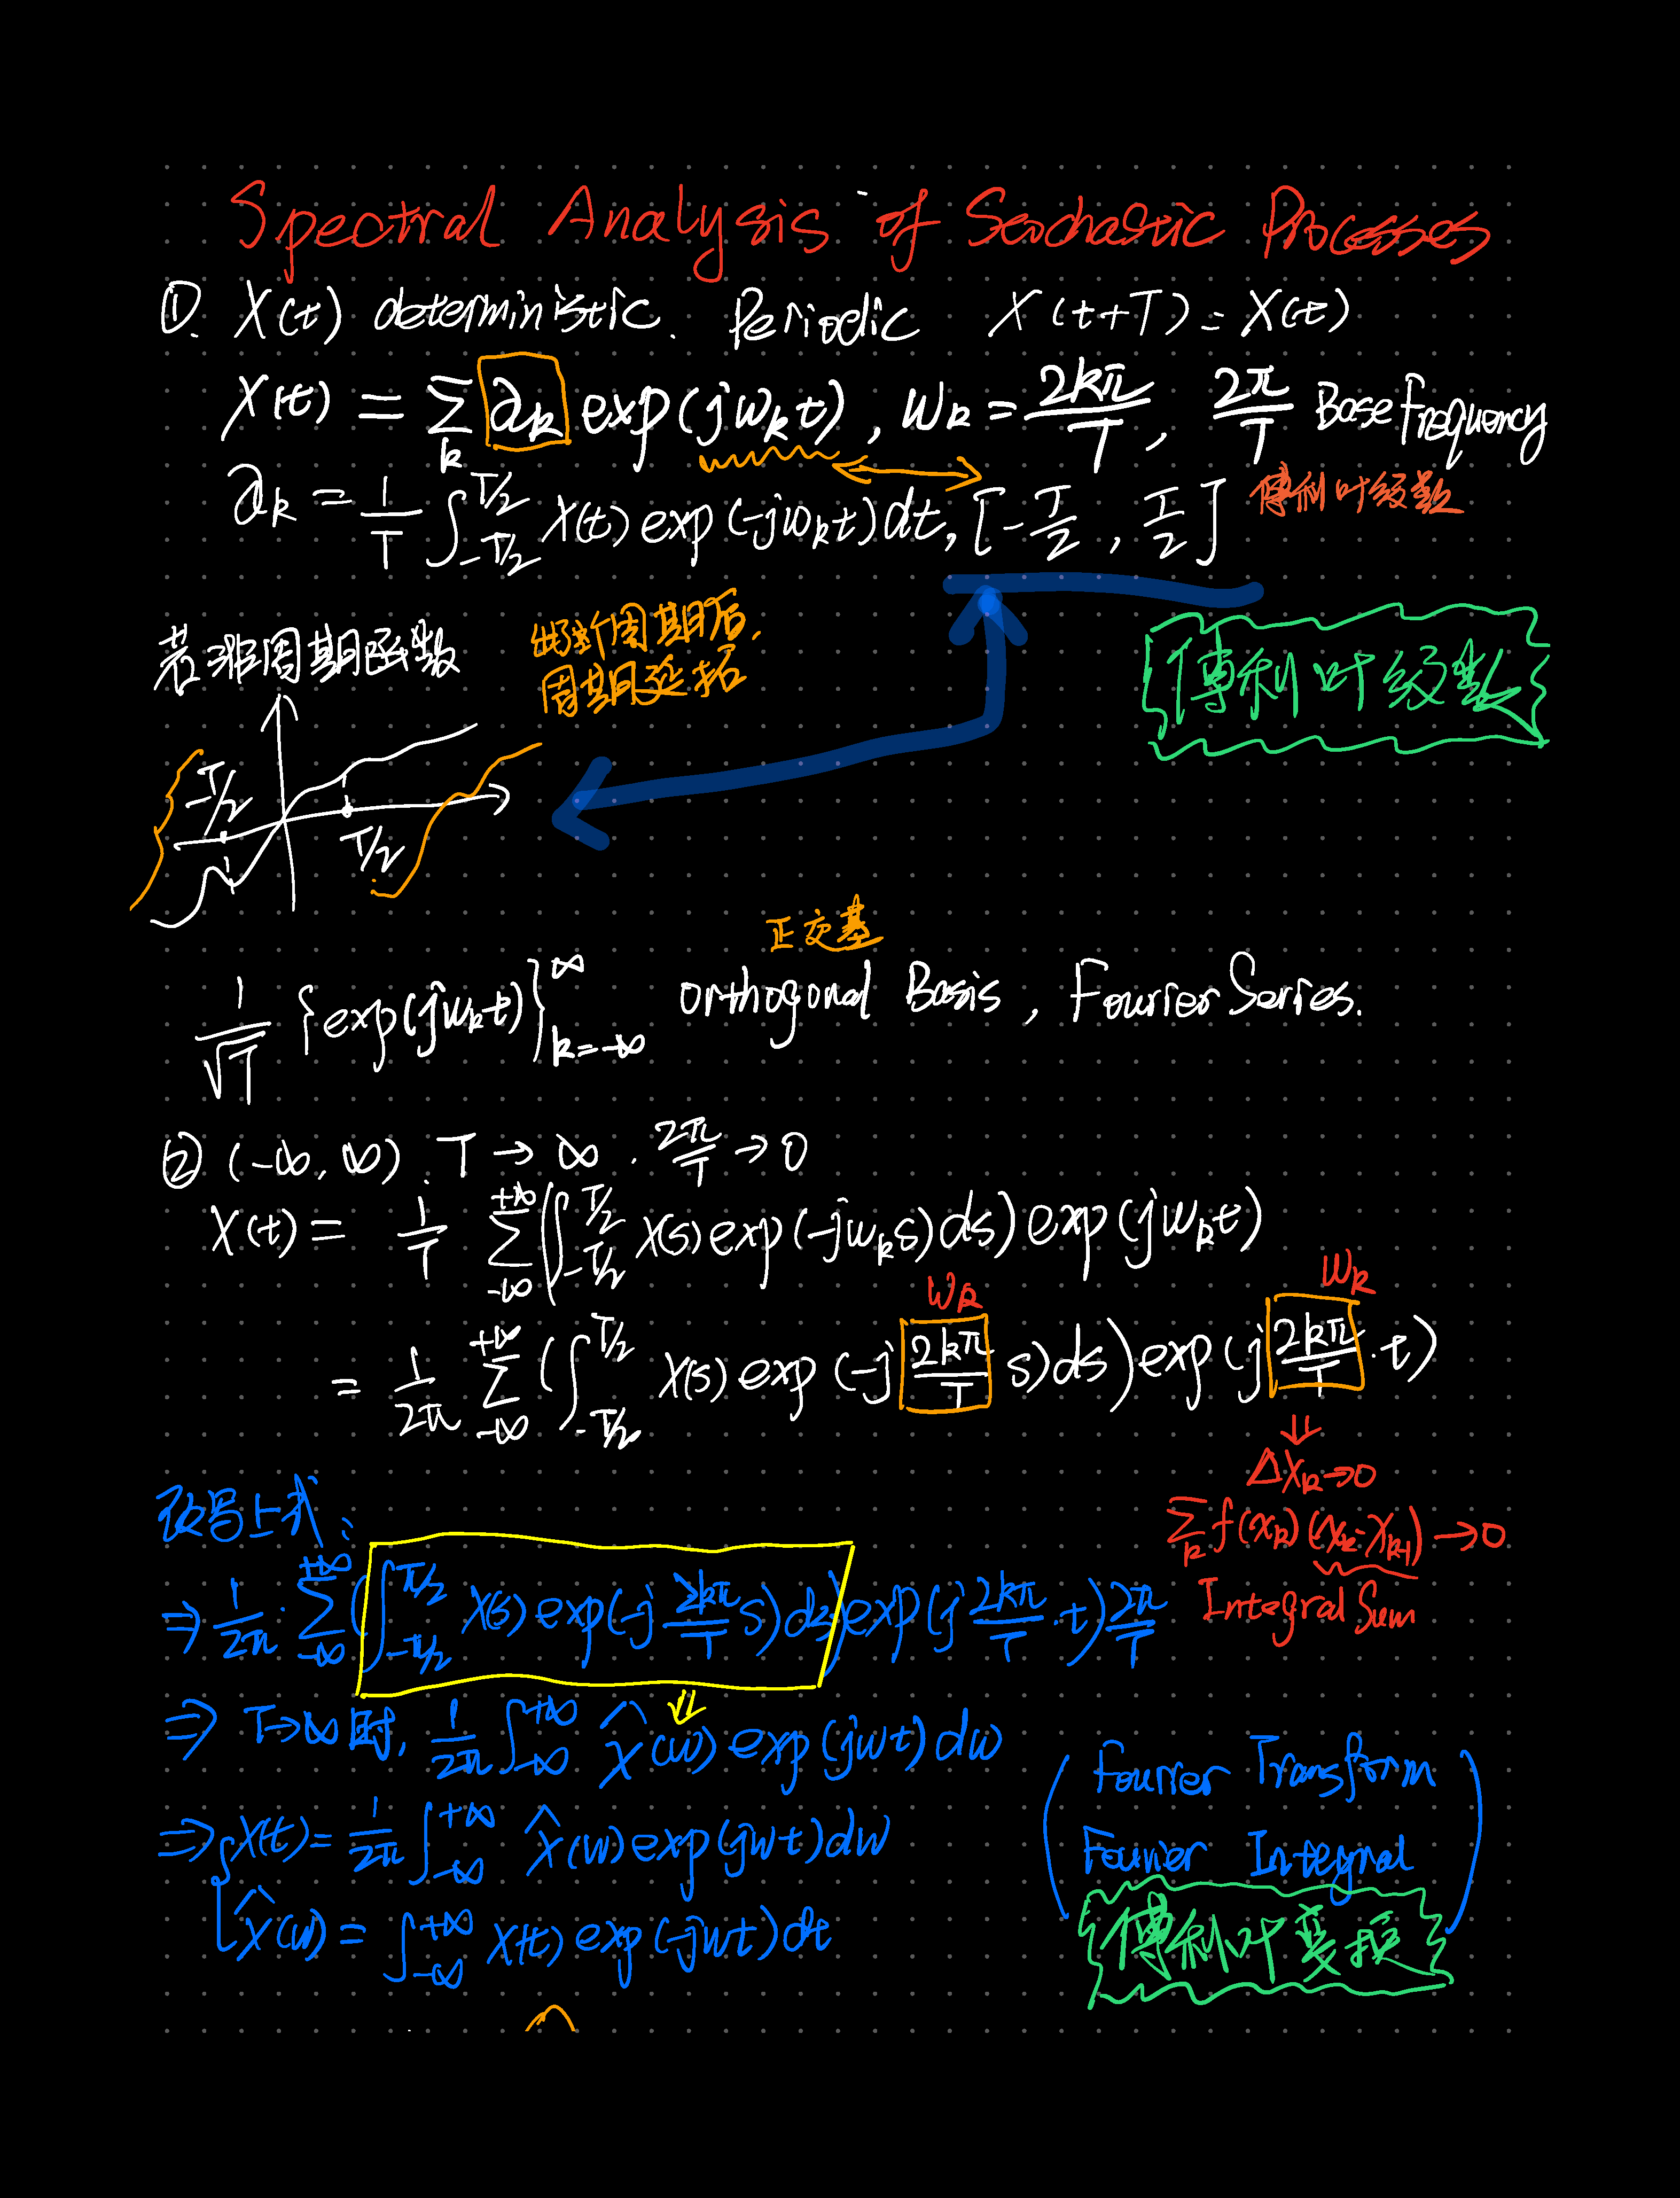 Spectral Analysis of Stochastic Processes
①. X(t) deterministic. Periodic X(t+T) = X(t)
X(t) = Σ_k a_k exp(jω_k t), ω_k = 2kπ/T, 2π/T Base frequency
a_k = 1/T ∫_{-T/2}^{T/2} X(t) exp(-jω_k t) dt, [-T/2, T/2] 傅利叶级数
若非周期函数
出新周期后,
周期延拓
傅利叶级数
-T/2
T/2
正交基
1/√T {exp(jω_k t)}_{k=-∞}^{∞} orthogonal Basis, Fourier Series.
② (-∞, ∞). T → ∞. 2π/T → 0
X(t) = 1/T Σ_{-∞}^{+∞} (∫_{-T/2}^{T/2} X(s) exp(-jω_k s) ds) exp(jω_k t)
ω_k ω_k
= 1/2π Σ_{-∞}^{+∞} (∫_{-T/2}^{T/2} X(s) exp(-j 2kπ/T s) ds) exp(j 2kπ/T · t)
⇓
ΔX_k → 0
Σ_k f(x_k) (x_k - x_{k-1}) → 0
Integral Sum
改写上式:
⇒ 1/2π · Σ_{-∞}^{+∞} (∫_{-T/2}^{T/2} X(s) exp(-j 2kπ/T s) ds) exp(j 2kπ/T · t) 2π/T
⇒ T→∞ 时, 1/2π ∫_{-∞}^{+∞} X̂(ω) exp(jωt) dω
⇒ { X(t) = 1/2π ∫_{-∞}^{+∞} X̂(ω) exp(jωt) dω
X̂(ω) = ∫_{-∞}^{+∞} X(t) exp(-jωt) dt
(Fourier Transform
Fourier Integral)
傅利叶变换